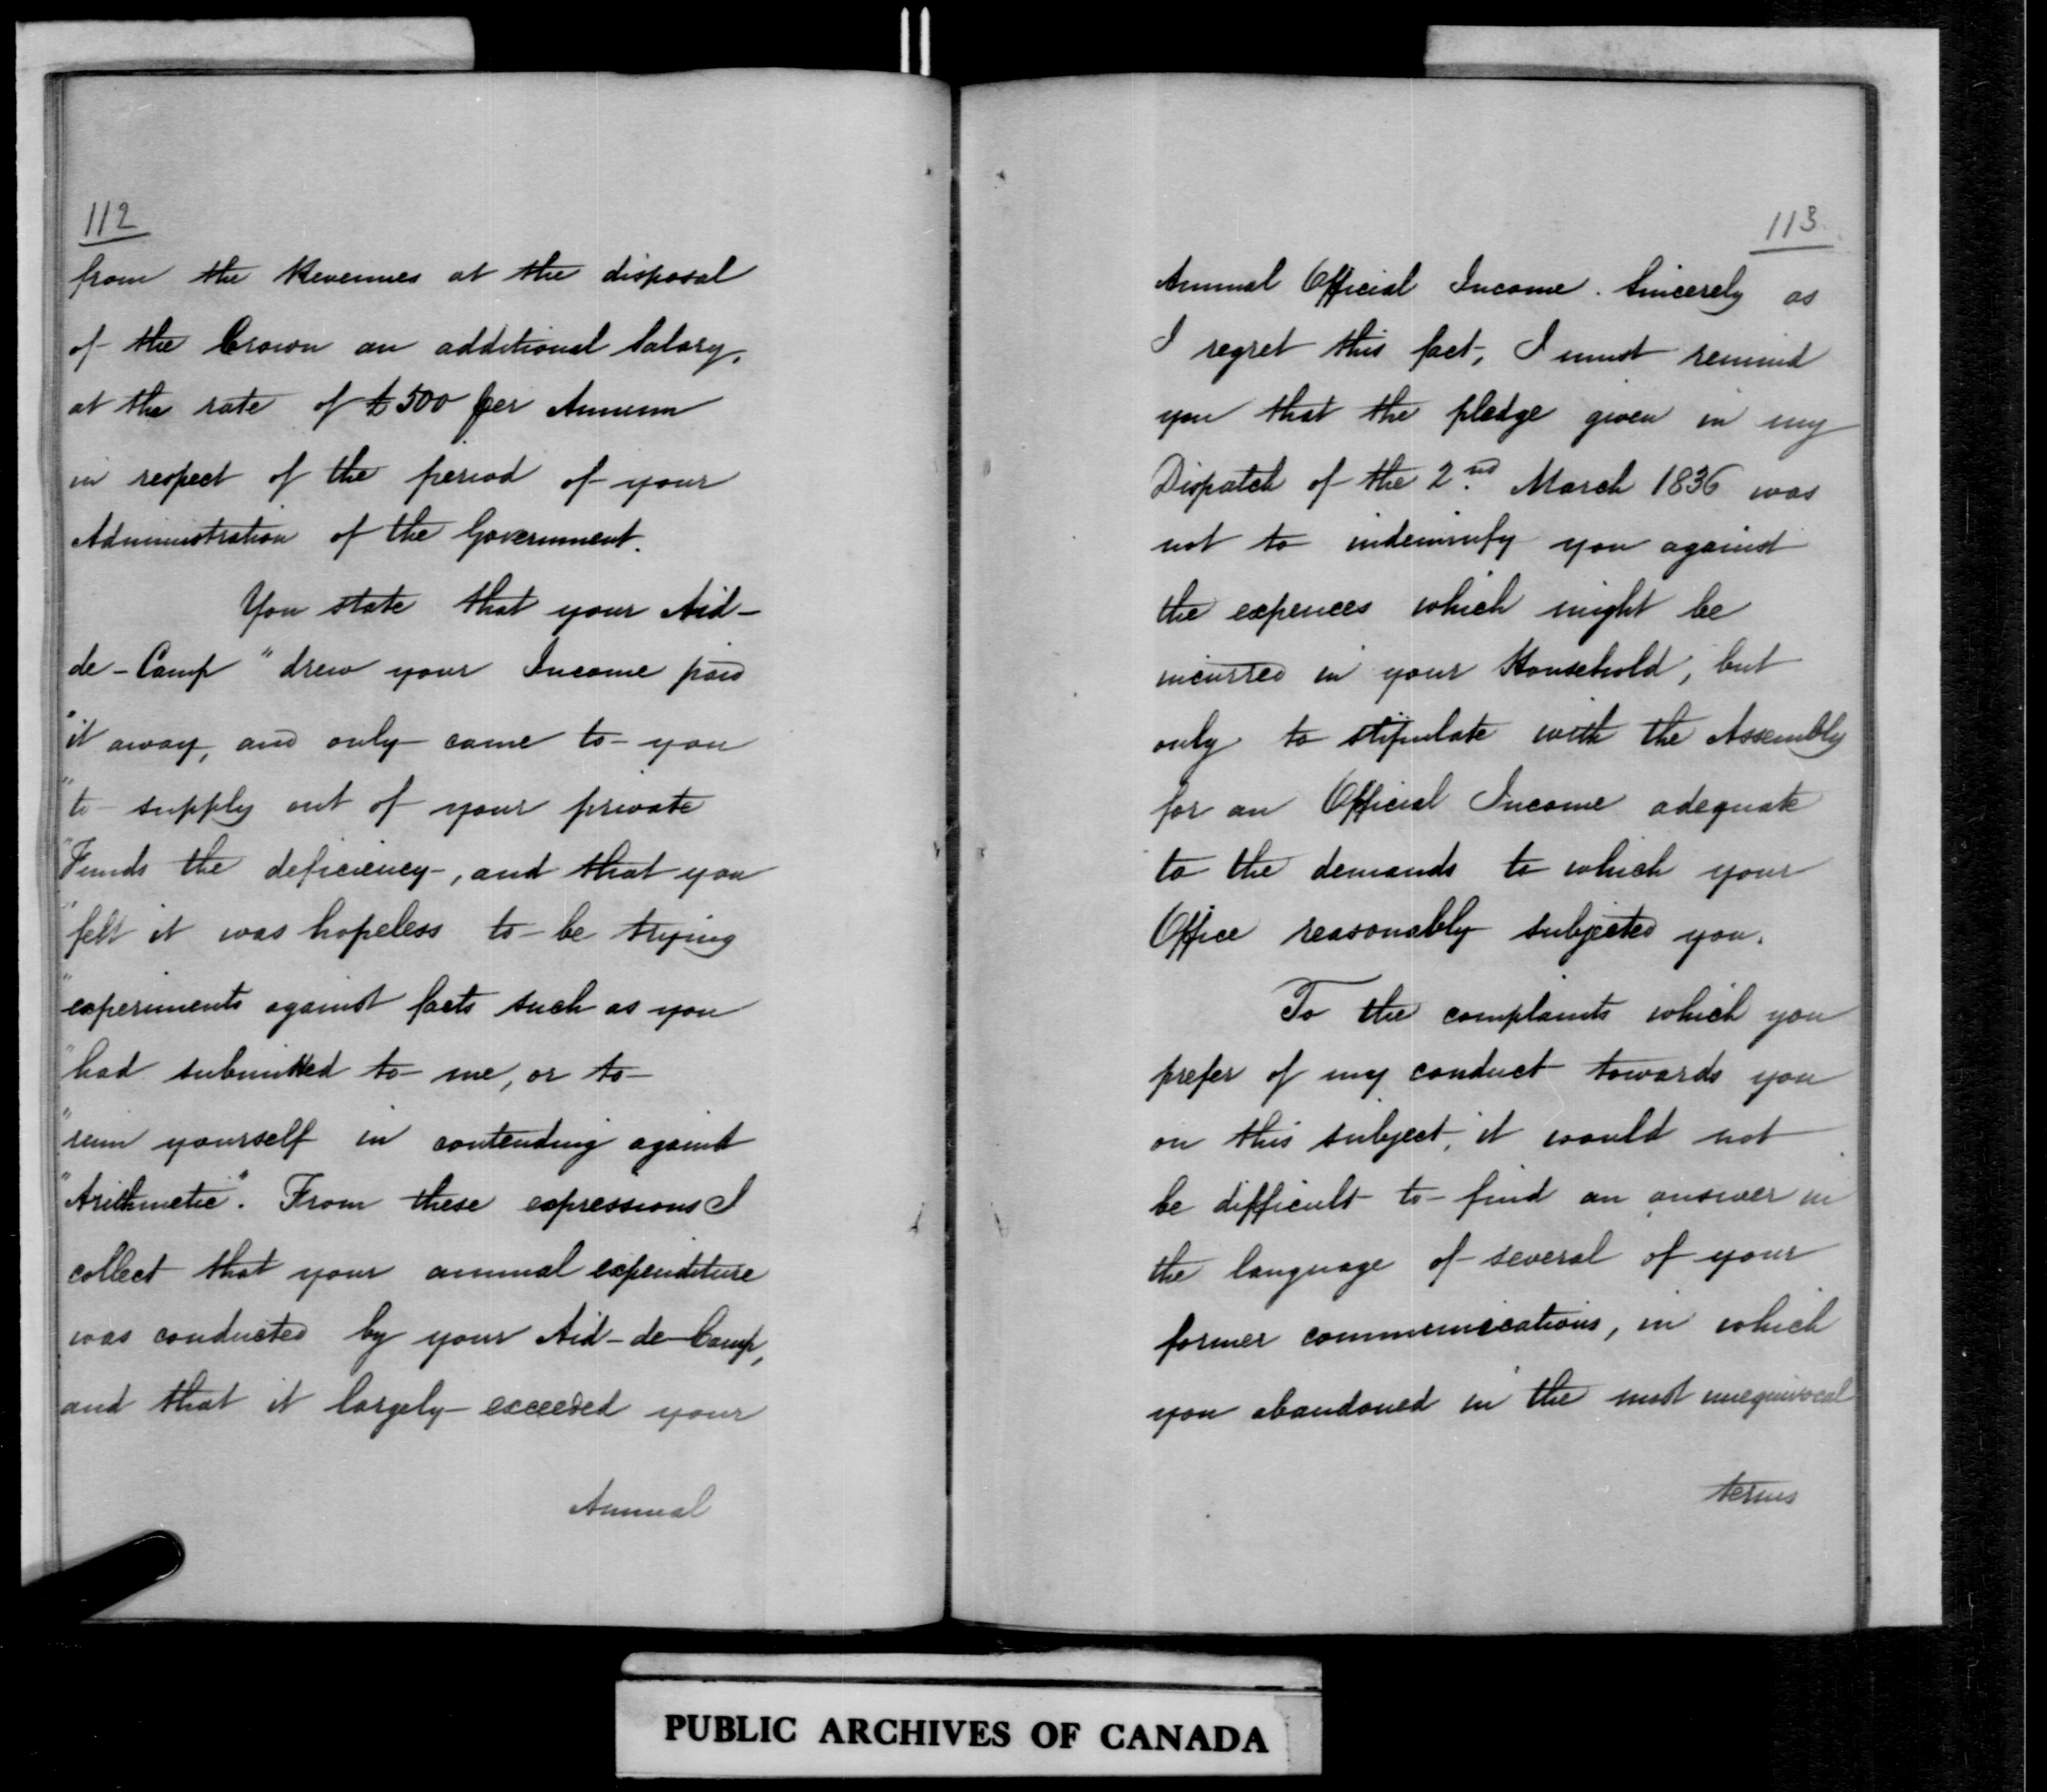 112
from the Revenues at the disposal
of the Crown an additional Salary,
at the rate of £500 per Annum
in respect of the period of your
Administration of the Government.
You state that your Aid-
de-Camp "drew your Income paid
"it away, and only came to you
"to supply out of your private
"Funds the deficiency, and that you
"felt it was hopeless to be trying
"experiments against facts such as you
"had submitted to me, or to
"ruin yourself in contending against
"Arithmetic". From these expressions I
collect that your annual expenditure
was conducted by your Aid-de-Camp,
and that it largely exceeded your
Annual
113
Annual Official Income. Sincerely as
I regret this fact, I must remind
you that the pledge given in my
Dispatch of the 2nd. March 1836 was
not to indemnify you against
the expences which might be
incurred in your Household, but
only to stipulate with the Assembly
for an Official Income adequate
to the demands to which your
Office reasonably subjected you.
To the complaints which you
prefer of my conduct towards you
on this subject, it would not
be difficult to find an answer in
the language of several of your
former communications, in which
you abandoned in the most unequivocal
terms
PUBLIC ARCHIVES OF CANADA